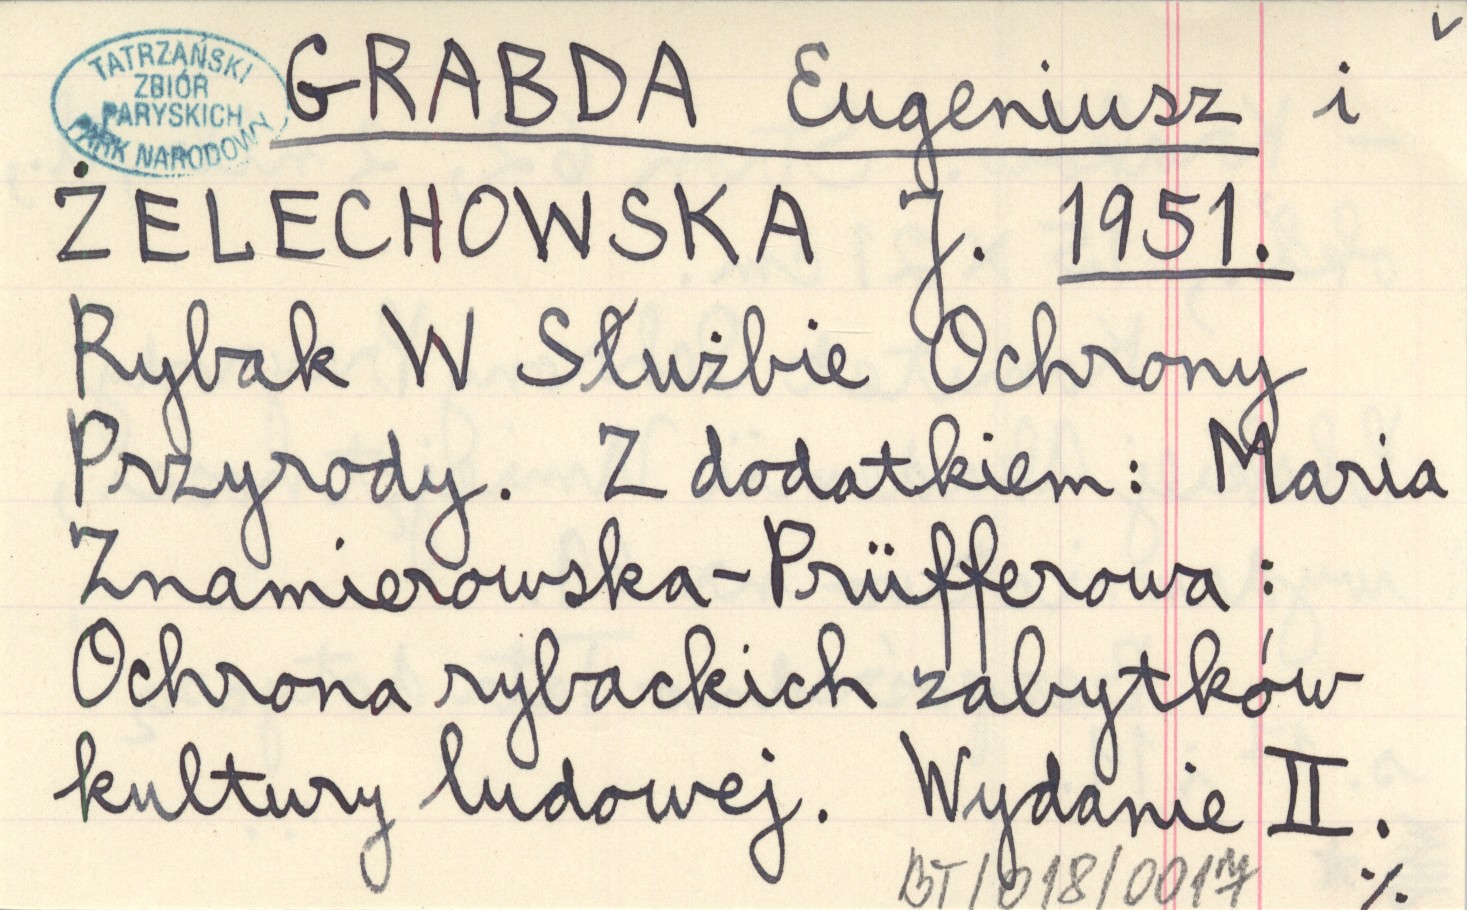 TATRZAŃSKI
ZBIÓR
PARYSKICH
PARK NARODOWY
GRABDA Eugeniusz i
ŻELECHOWSKA J. 1951.
Rybak W Służbie Ochrony
Przyrody. Z dodatkiem: Maria
Znamierowska-Prüfferowa:
Ochrona rybackich zabytków
kultury ludowej. Wydanie II.
BT/018/0017
./.